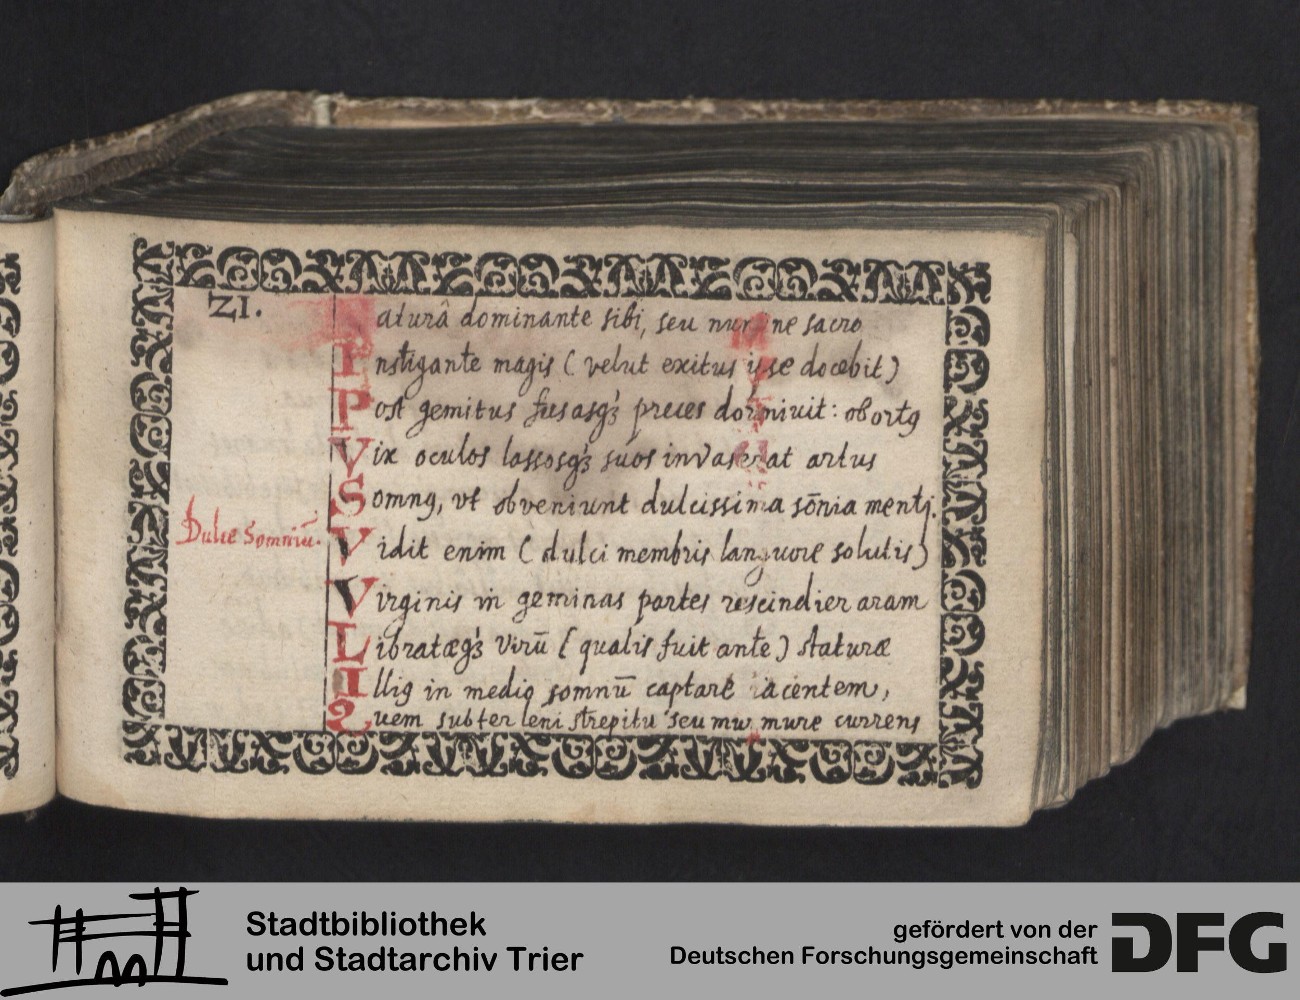 21.
atura dominante sibi, seu numine sacro
Instigante magis (velut exitus ipse docebit)
Post gemitus fusasq3 preces dormivit: obortꝰ
Vix oculos lassosq3 suos invaserat artus
Somnꝰ, vt obveniunt dulcissima sōnia menti.
Dulce Somniū.
Vidit enim (dulci membris languore solutis)
Virginis in geminas partes rescindier aram
Librataeq3 virū (qualis fuit ante) staturae
Illiꝰ in medio somnū captare iacentem,
Quem subter leni strepitu seu murmure currens
Stadtbibliothek
und Stadtarchiv Trier
gefördert von der
Deutschen Forschungsgemeinschaft
DFG